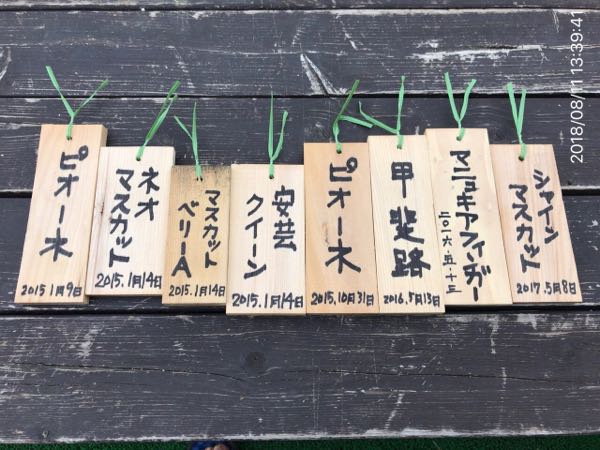 ピオー木
2015.1月9日
ネオ
マスカット
2015.1月14日
マスカット
ベリーA
2015.1月14日
安芸
クイーン
2015.1月14日
ピオー木
2015.10月31日
甲斐路
2016.5月13日
マニョキアフィンガー
二〇一六.五.十三
シャイン
マスカット
2017.5月8日
2018/08/11 13:39:41